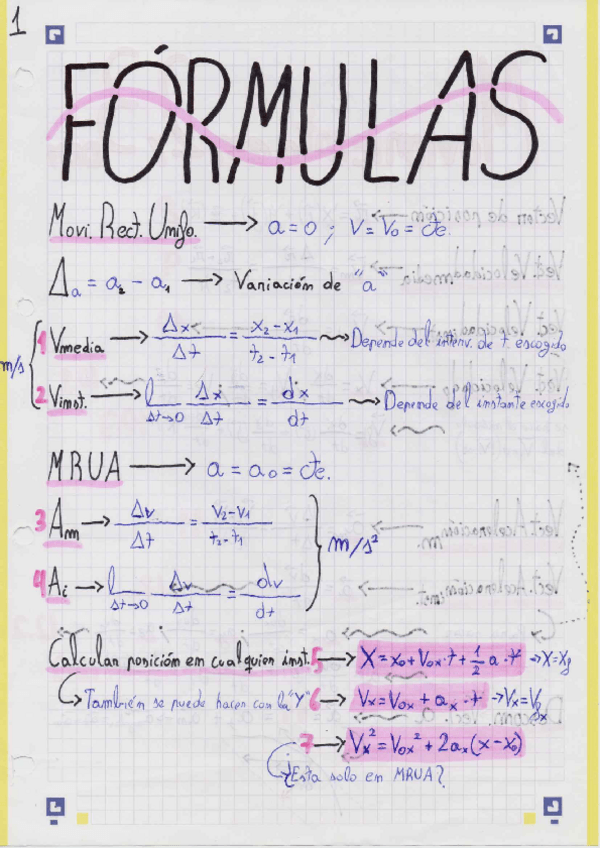 1
FÓRMULAS
Movi. Rect. Unifo. → a = 0 ; V = V₀ = cte.
Δₐ = a₂ - a₁ → Variación de "a"
m/s
1 Vmedia → Δx/Δt = x₂ - x₁/t₂ - t₁ ~> Depende del interv. de t escogido
2 Vinst. → l Δt→0 Δx/Δt = dx/dt ~> Depende del instante escogido
MRUA → a = a₀ = cte.
3 Am → Δv/Δt = v₂ - v₁/t₂ - t₁
m/s²
4 Ai → l Δt→0 Δv/Δt = dv/dt
Calcular posición em cualquier inst. 5 → X = x₀ + V₀x · t + 1/2 a · t → X = Xf
↪ También se puede hacer con la "Y" 6 → Vx = V₀x + ax · t → Vx = Vfx
7 → Vx² = V₀x² + 2ax (x - x₀)
↪ ¿Esta solo en MRUA?